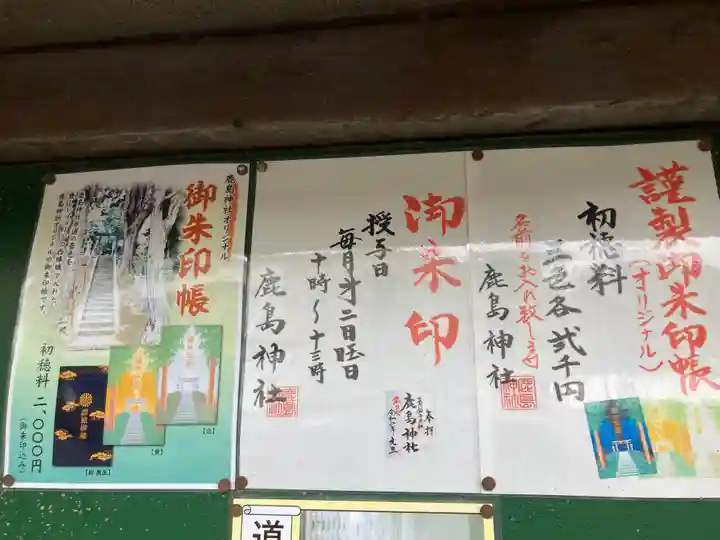 謹製御朱印帳
(オリジナル)
初穂料
三色各弐千円
名前をお入れ致します
鹿島神社
御朱印
授与日
毎月第二日曜日
十時〜十三時
鹿島神社
奉拝
鹿島神社
鹿島神社オリジナル
御朱印帳
初穂料 二、〇〇〇円
(御朱印込み)
【白】
【黄】
道